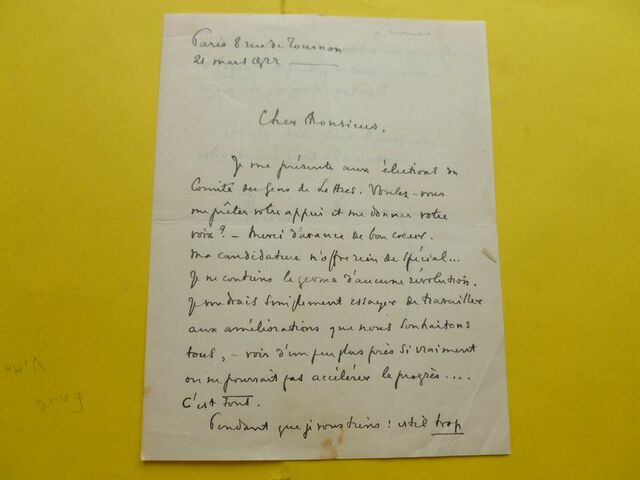 Paris 8 rue de Tournon
21 mars 1922
Cher Monsieur,
Je me présente aux élections du
Comité des Gens de Lettres. Voulez-vous
me prêter votre appui et me donner votre
voix ? – Merci d'avance de bon coeur.
Ma candidature n'offre rien de spécial...
Je ne contiens le germe d'aucune révolution.
Je voudrais simplement essayer de travailler
aux améliorations que nous souhaitons
tous, – voir d'un peu plus près si vraiment
on ne pourrait pas accélérer le progrès....
C'est tout.
Pendant que je vous tiens : est-il trop